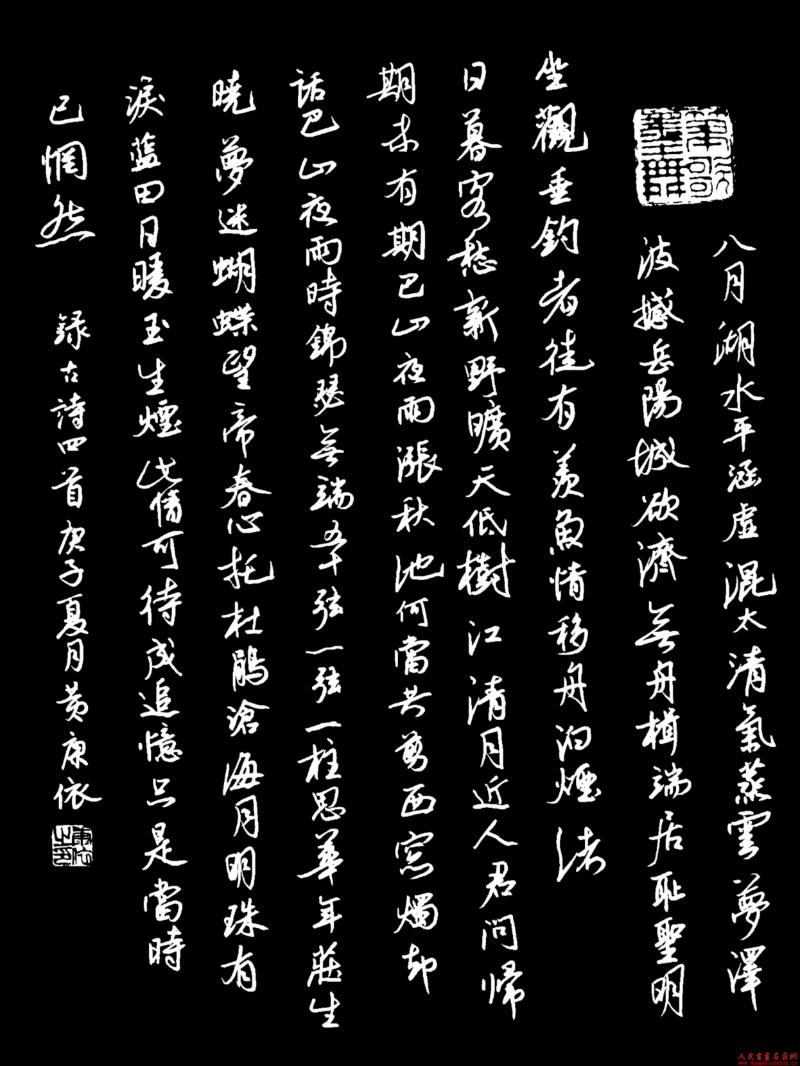 八月湖水平涵虛混太清氣蒸雲夢澤
波撼岳陽城欲濟無舟楫端居耻聖明
坐觀垂釣者徒有羨魚情移舟泊煙渚
日暮客愁新野曠天低樹江清月近人君問歸
期未有期巴山夜雨漲秋池何當共剪西窓燭却
話巴山夜雨時錦瑟無端五十弦一弦一柱思華年莊生
曉夢迷蝴蝶望帝春心托杜鵑滄海月明珠有
淚藍田日暖玉生煙此情可待成追憶只是當時
已惘然
錄古詩四首庚子夏月黄康依